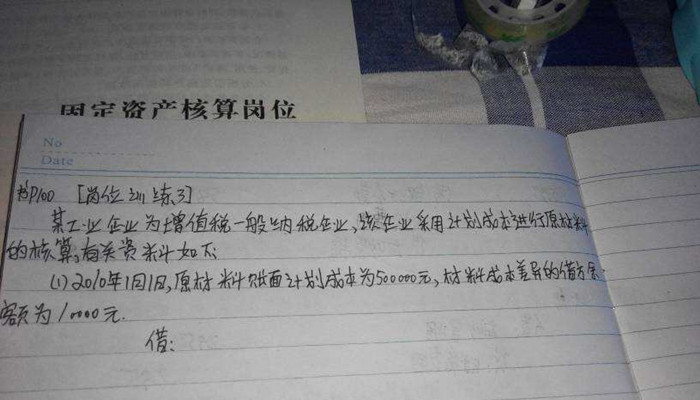 固定资产核算岗位
No
Date
P100 [岗位训练3]
某工业企业为增值税一般纳税企业,该企业采用计划成本进行原材料
的核算,有关资料如下:
(1)2010年1月1日,原材料账面计划成本为500000元,材料成本差异的借方余
额为10000元.
借: